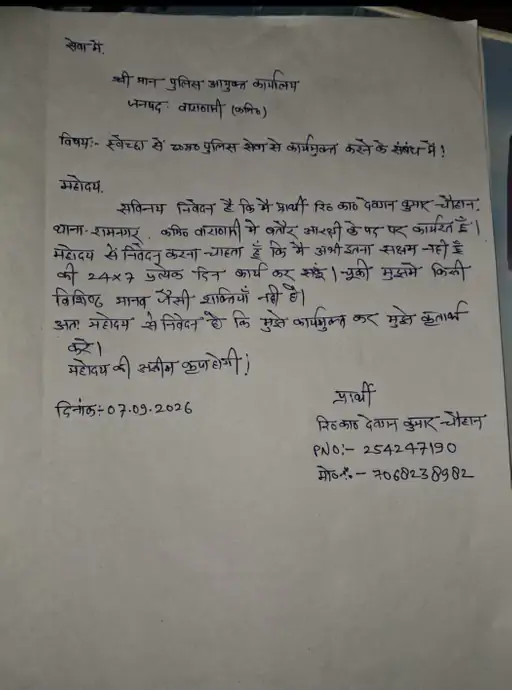 सेवा में,
श्री मान पुलिस आयुक्त कार्यालय
जनपद वाराणसी (कमि०)
विषय:- स्वेच्छा से उ०प्र० पुलिस सेवा से कार्यमुक्त करने के संबंध में !
महोदय,
सविनय निवेदन है कि मै प्रार्थी रि० का० देवान कुमार चौहान,
थाना- रामनगर, कमि० वाराणसी मे बतौर आरक्षी के पद पर कार्यरत हूँ।
महोदय से निवेदन करना चाहता हूँ कि मै अभी इतना सक्षम नही हूँ
की 24x7 प्रत्येक दिन कार्य कर सकूं। चूकी मुझमे किसी
विशिष्ट मानव जैसी शक्तियाँ नही है।
अतः महोदय से निवेदन है कि मुझे कार्यमुक्त कर मुझे कृतार्थ
करे।
महोदय की असीम कृपा होगी!
प्रार्थी
दिनांक:- 07.09.2026
रि० का० देवान कुमार चौहान
PNO:- 254247190
मो०नं०- 7068238982